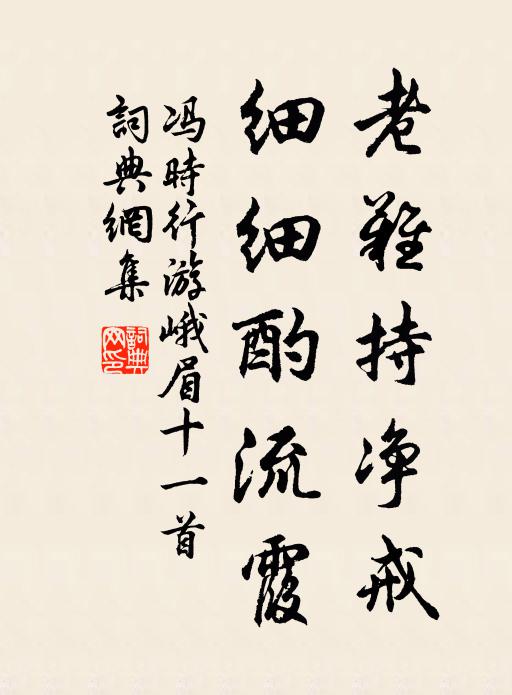 老難持净戒
细细酌流霞
冯時行游峨眉十一首
詞典網集
詞典網印